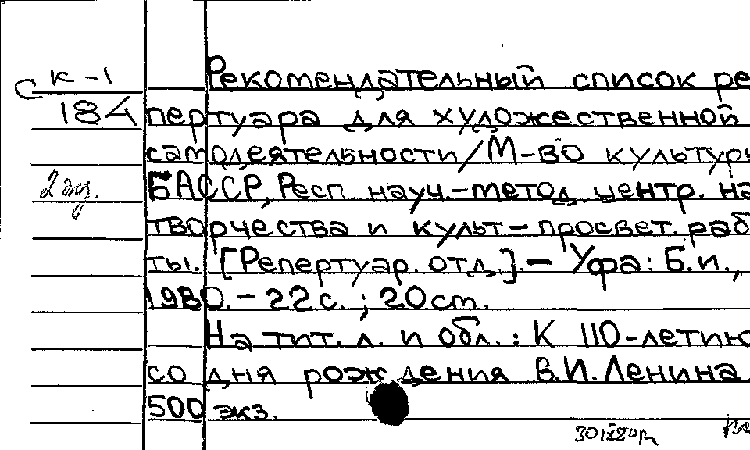 К-1
С 184
2 эк.
Рекомендательный список ре
пертуара для художественной
самодеятельности/М-во культуры
БАССР, Респ. науч.-метод. центр. на
творчества и культ-просвет. раб
ты. [Репертуар. отд.]. - Уфа: Б.и.,
1980. - 22 с. ; 20 ст.
На тит. л. и обл.: К 110-летию
со дня рождения В.И. Ленина
500 экз.